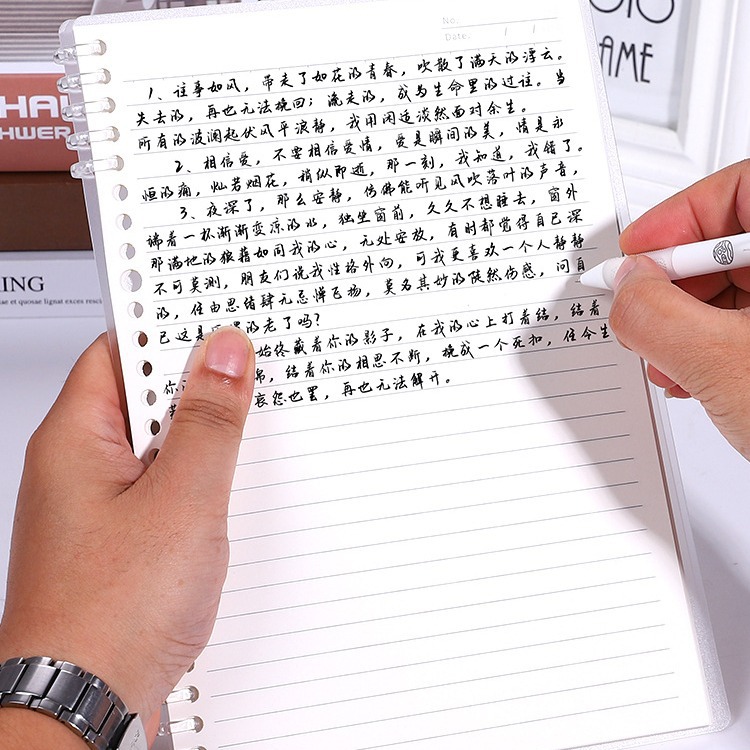 No.
Date. / /
1、往事如风，带走了如花的青春，吹散了满天的浮云。
失去的，再也无法挽回；流走的，成为生命里的过往。当
所有的波澜起伏风平浪静，我用闲适淡然面对余生。
2、相信爱，不要相信爱情，爱是瞬间的美，情是永
恒的痛，灿若烟花，稍纵即逝，那一刻，我知道，我错了。
3、夜深了，那么安静，仿佛能听见风吹落叶的声音，
端着一杯渐渐变凉的水，独坐窗前，久久不想睡去，窗外
那满地的狼藉如同我的心，无处安放，有时都觉得自己深
不可莫测，朋友们说我性格外向，可我更喜欢一个人静静
的，任由思绪肆无忌惮飞扬，莫名其妙的陡然伤感，问自
己这是 的老了吗？
始终藏着你的影子，在我的心上打着结，结着
你 ，结着你的相思不断，挽成一个死扣，任今生
哀怨也罢，再也无法解开。
HAI
HWER
ING
AME